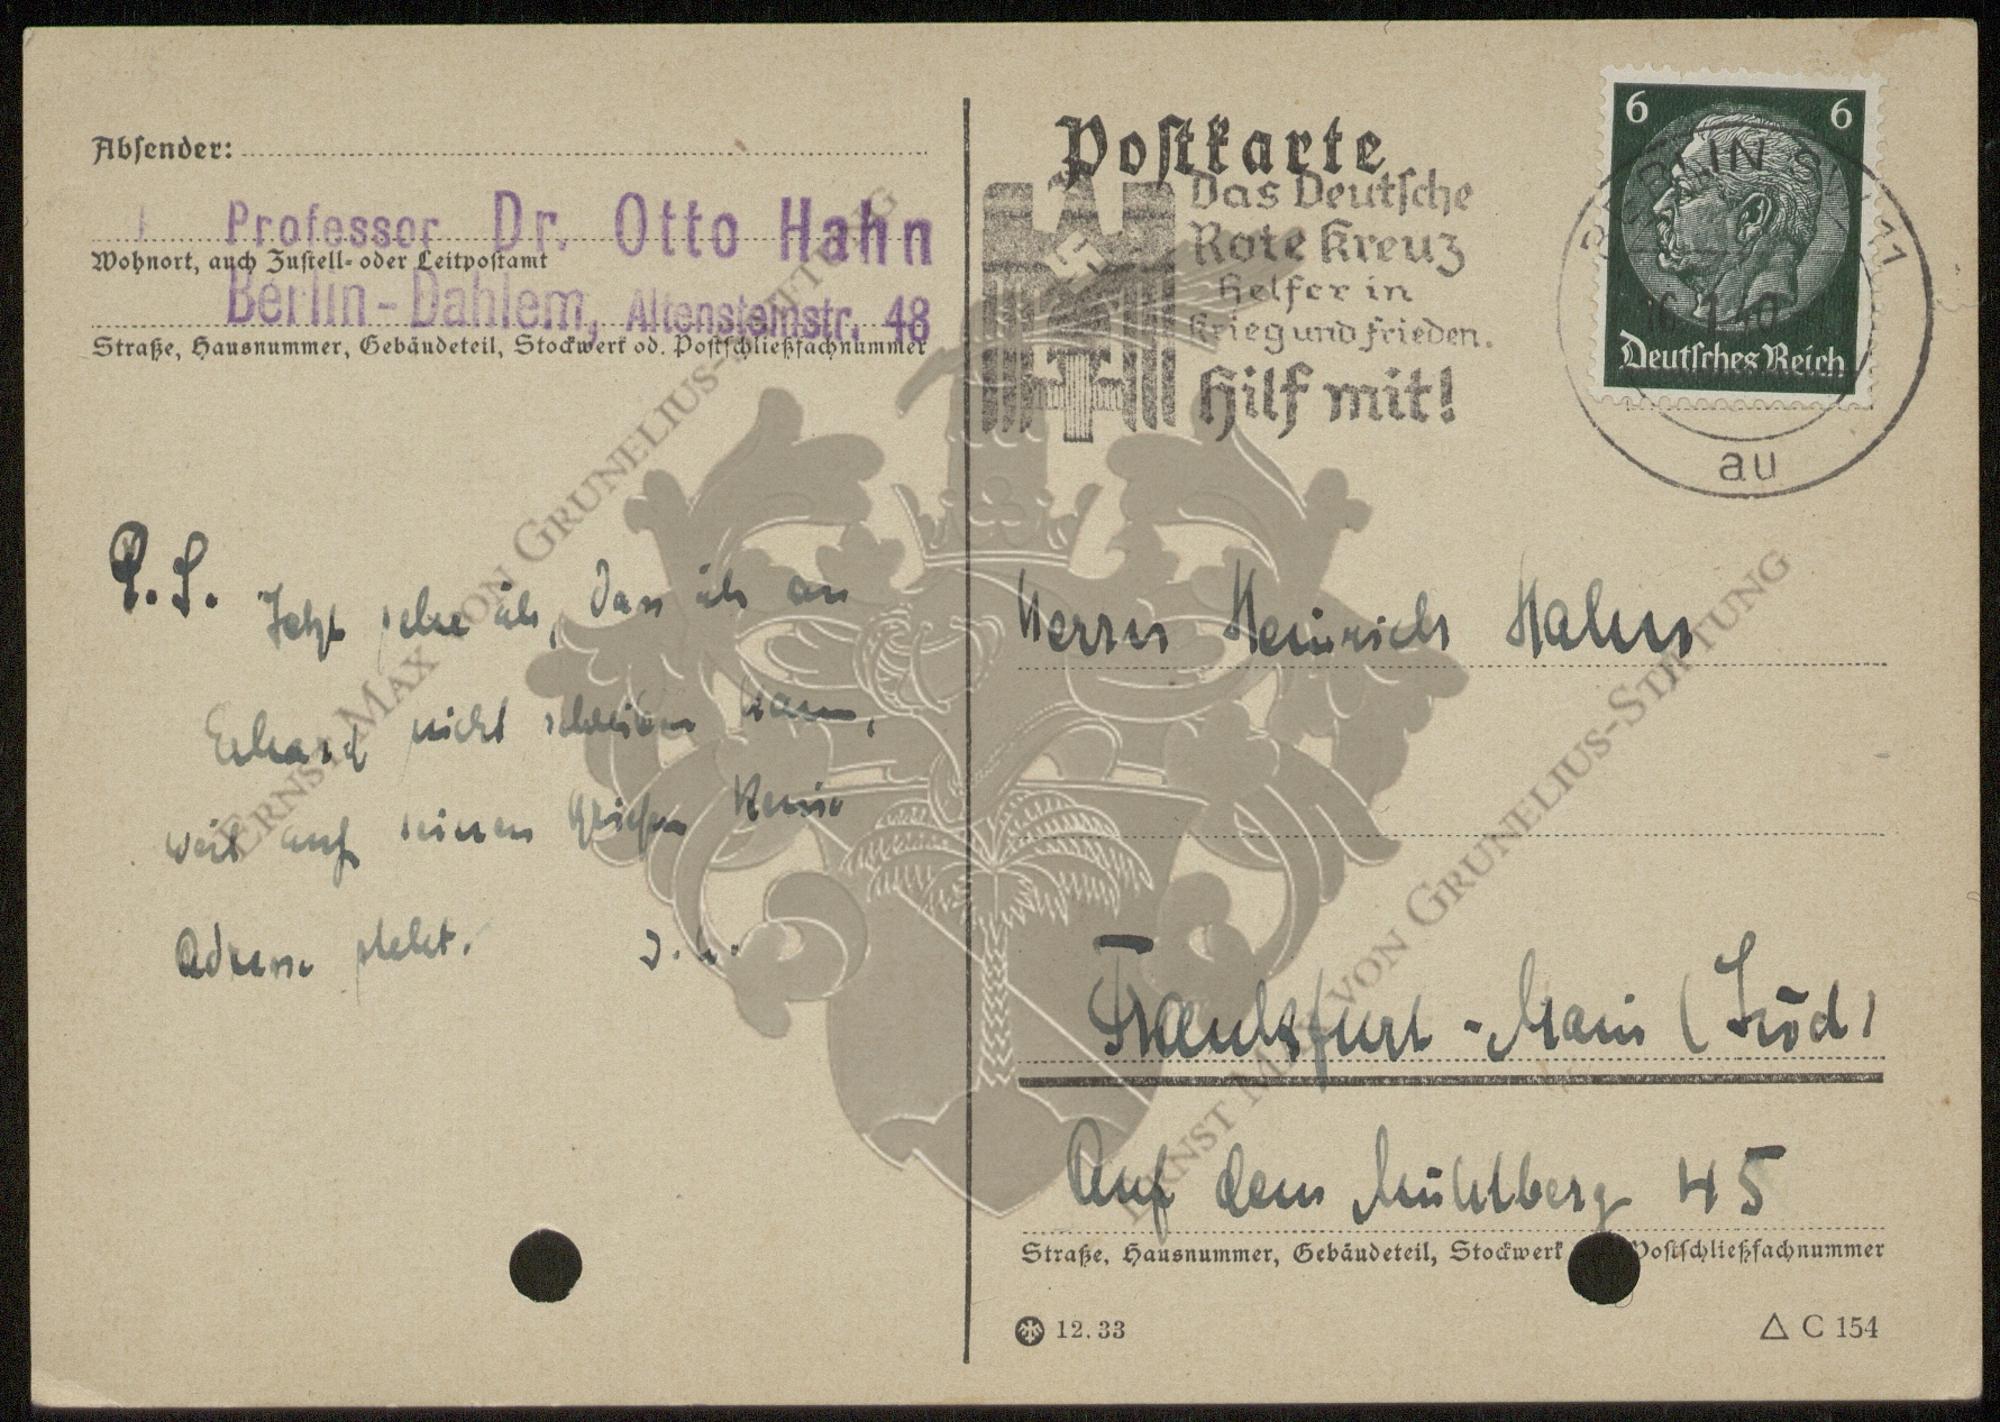 Absender:
Professor Dr. Otto Hahn
Wohnort, auch Zustell- oder Leitpostamt
Berlin-Dahlem, Altensteinstr. 48
Straße, Hausnummer, Gebäudeteil, Stockwerk od. Postschließfachnummer
P.S. Jetzt sehe ich, dass ich an
Erhard nicht schreiben kann,
weil auf seinen Briefen keine
Adresse steht.
Postkarte
Das Deutsche
Rote Kreuz
Helfer in
Krieg und Frieden.
Hilf mit!
6 6
Deutsches Reich
BERLIN
au
Herrn Heinrich Hahn
Frankfurt-Main (Süd)
Auf dem Mühlberg 45
Straße, Hausnummer, Gebäudeteil, Stockwerk Postschließfachnummer
12.33
C 154
ERNST MAX VON GRUNELIUS-STIFTUNG
ERNST MAX VON GRUNELIUS-STIFTUNG